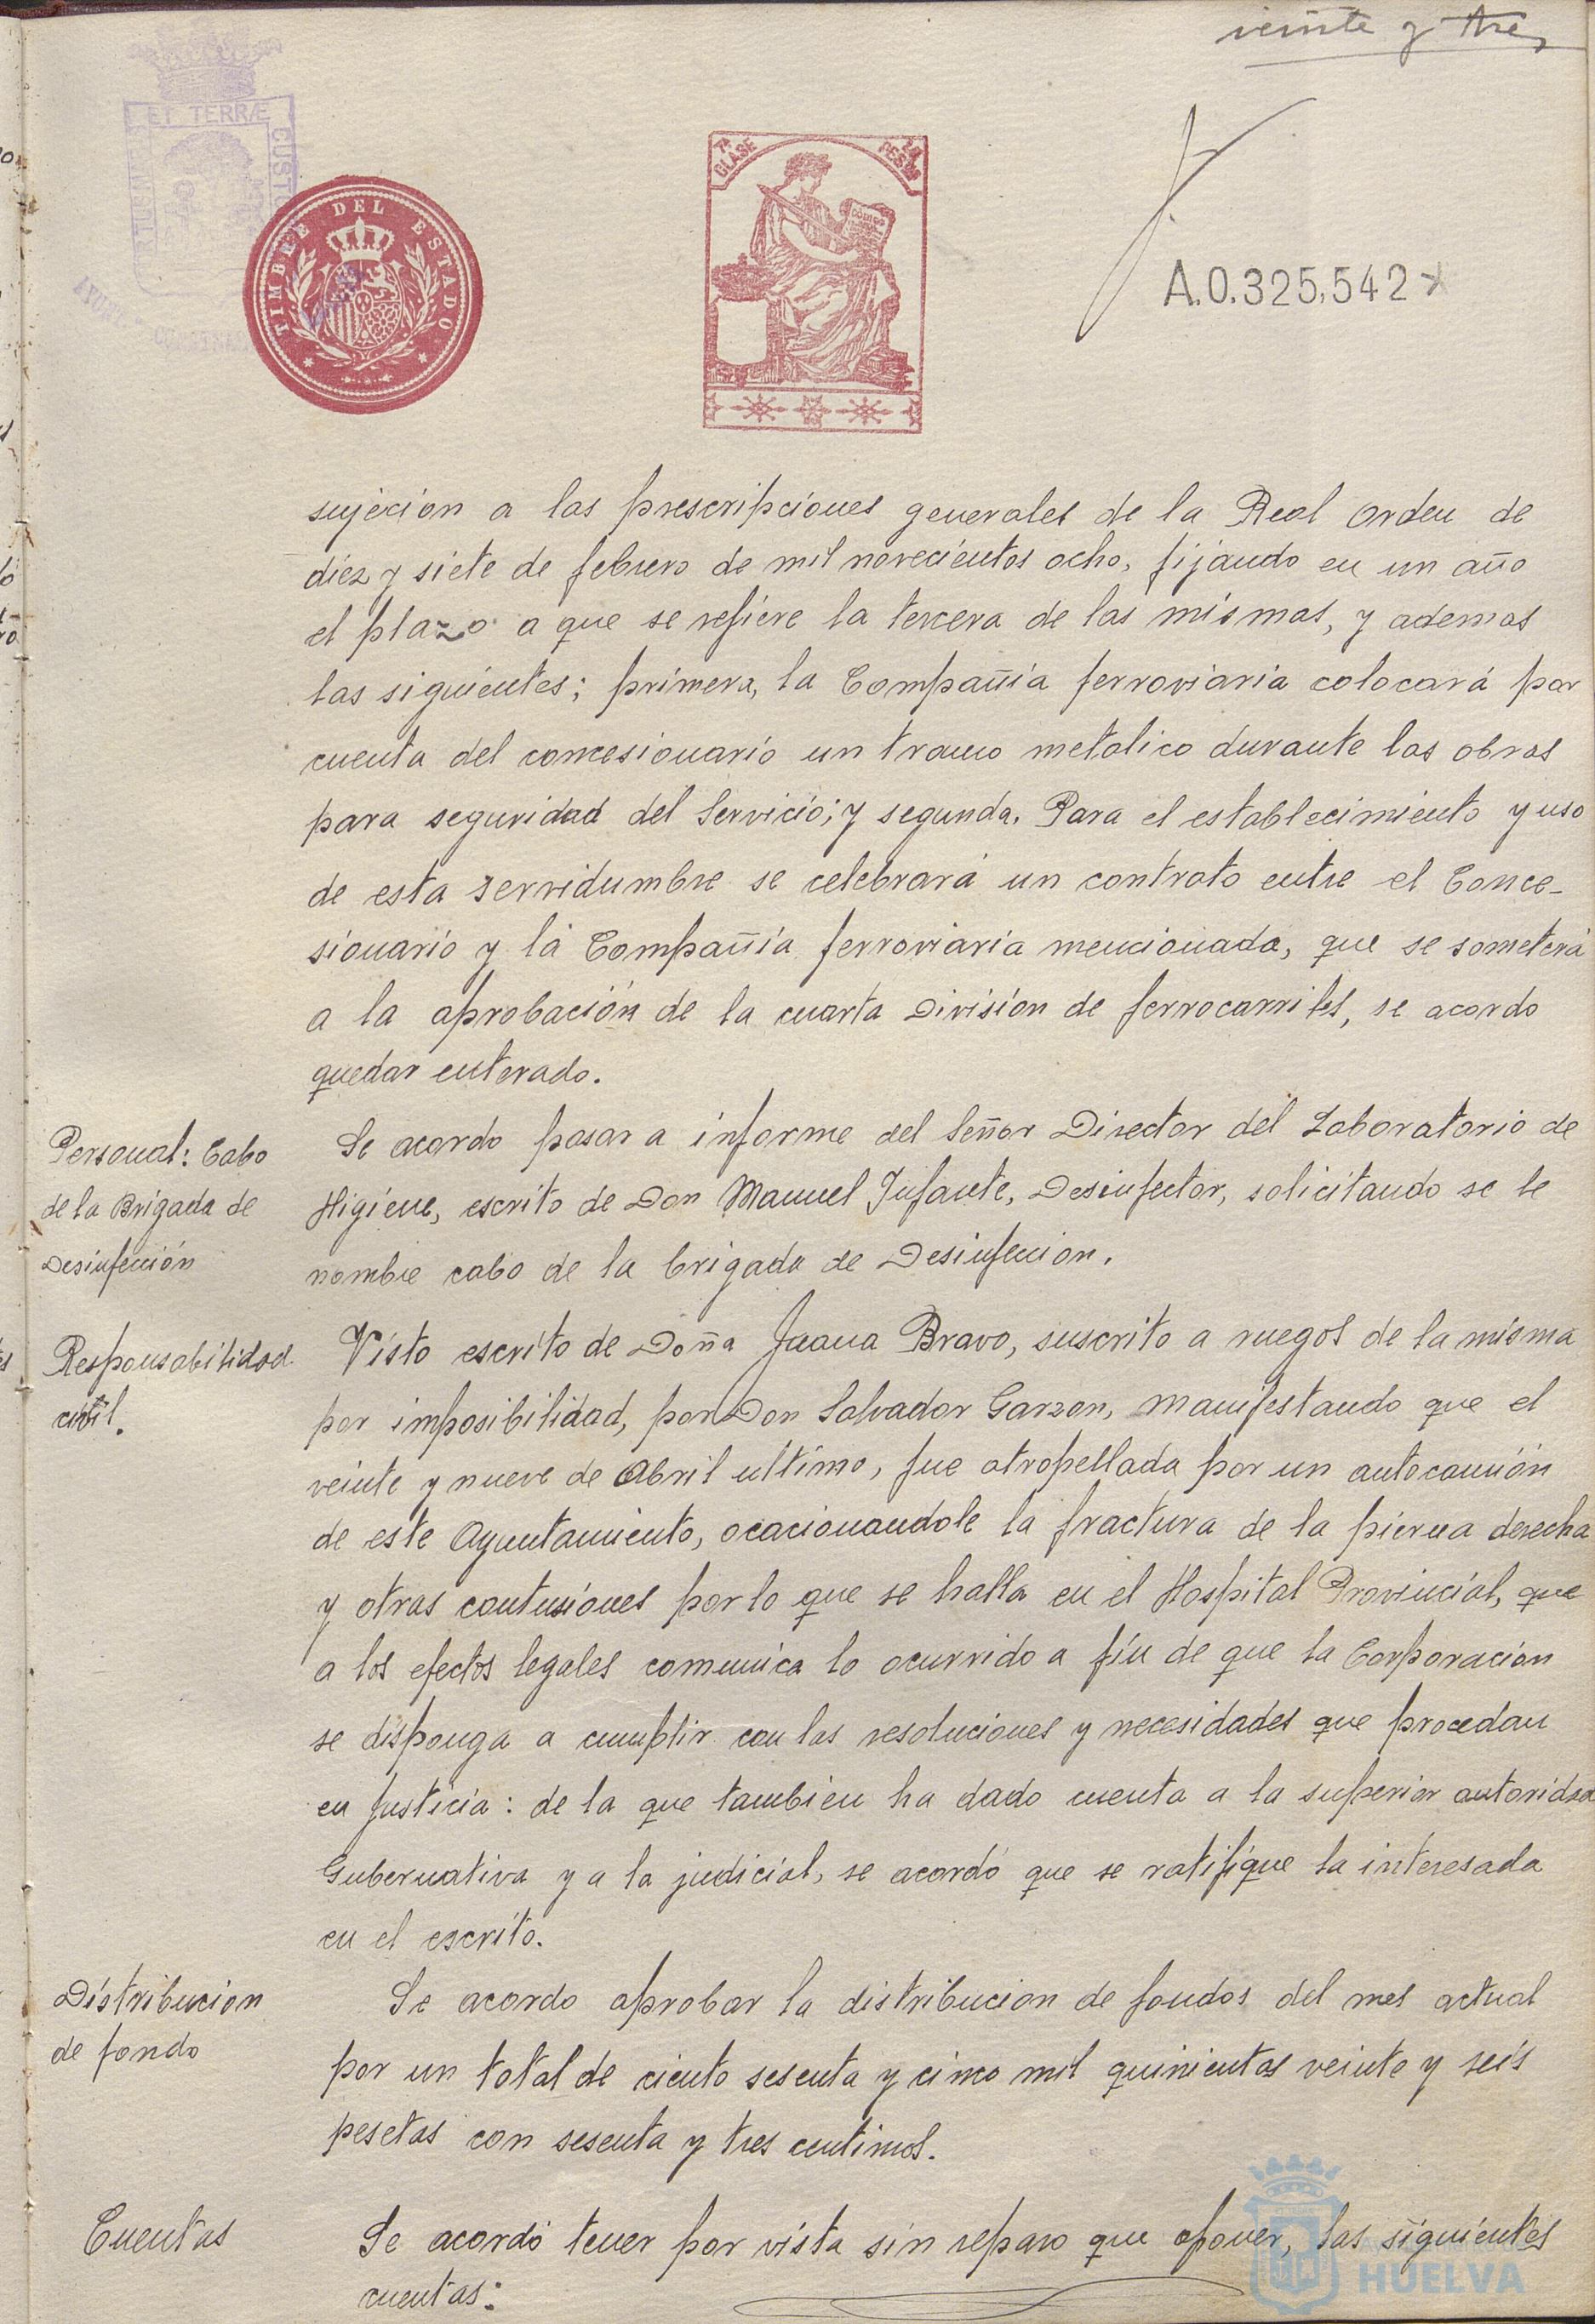 veinte y tres
ET TERRÆ
CUST
TIMBRE DEL ESTADO
7ª CLASE
PESTAS
A.0.325,542
sujecion a las prescripciones generales de la Real orden de
diez y siete de febrero de mil novecientos ocho, fijando en un año
el plazo a que se refiere la tercera de las mismas, y ademas
las siguientes; primera, la Compañia ferroviaria colocará por
cuenta del concesionario un tramo metalico durante las obras
para seguridad del Servicio; y segunda. Para el establecimiento y uso
de esta servidumbre se celebrará un contrato entre el Conce-
sionario y la Compañia ferroviaria mencionada, que se someterá
a la aprobación de la cuarta Division de ferrocarriles, se acordo
quedar enterado.
Personal: Cabo
de la Brigada de
Desinfección
Se acordo pasar a informe del Señor Director del Laboratorio de
Higiene, escrito de Don Manuel Infante, Desinfector, solicitando se le
nombre cabo de la brigada de Desinfeccion.
Responsabilidad
civil.
Visto escrito de Doña Juana Bravo, suscrito a ruegos de la misma
por imposibilidad, por Don Salvador Garzon, manifestando que el
veinte y nueve de Abril ultimo, fue atropellada por un autocamión
de este Ayuntamiento, ocacionandole la fractura de la pierna derecha
y otras contusiones por lo que se halla en el Hospital Provincial, que
a los efectos legales comunica lo ocurrido a fin de que la Corporacion
se disponga a cumplir con las resoluciones y necesidades que procedan
en Justicia: de la que tambien ha dado cuenta a la superior autoridad
Gubernativa y a la judicial, se acordó que se ratifique la interesada
en el escrito.
Distribucion
de fondo
Se acordo aprobar la distribucion de fondos del mes actual
por un total de ciento sesenta y cinco mil quinientas veinte y seis
pesetas con sesenta y tres centimos.
Cuentas
Se acordó tener por vista sin reparo que oponer, las siguientes
cuentas:
HUELVA